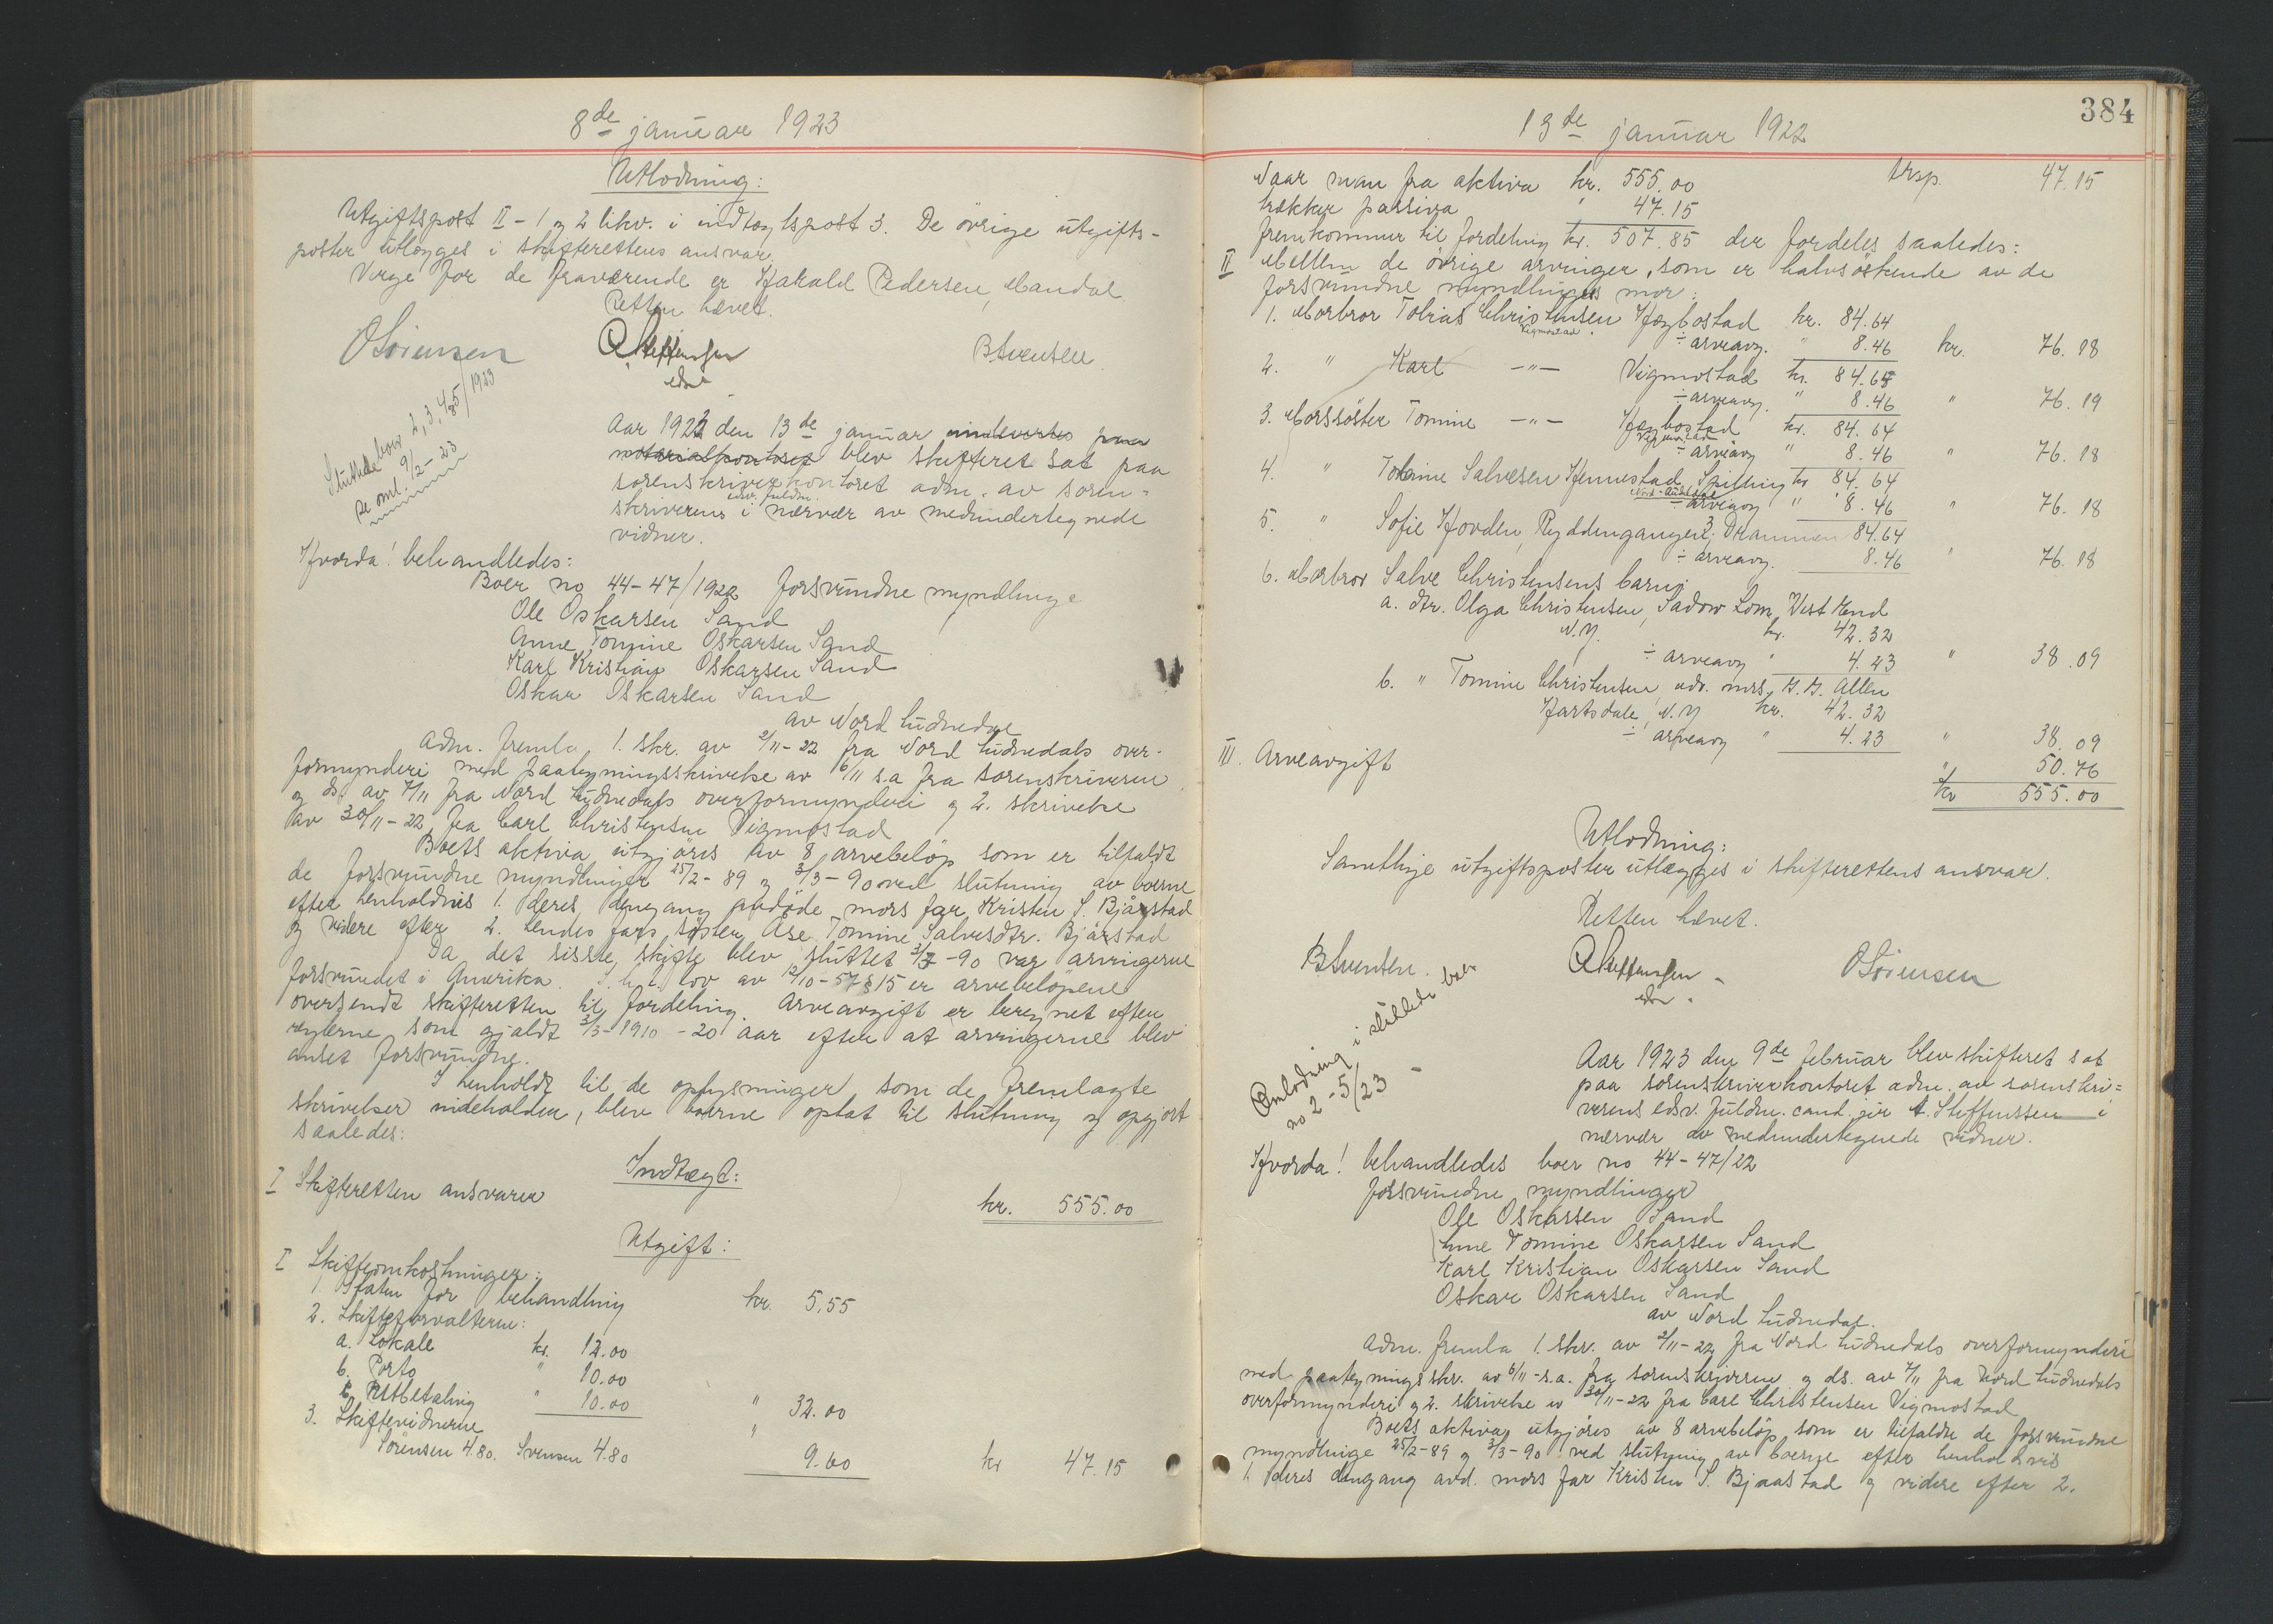 8de januar 1923
Utlodning:
Utgiftspost II - 1 og 2 likv. i indtægtspost 3. De övrige utgifts-
poster utlægges i skifterettens ansvar.
Verge for de fraværende er Harald Pedersen, Mandal
Retten hævet.
OSörensen
ASteffensen
BSvensen
edsv
Sluttede boer 2, 3, 4, 5/1923
se oml. 9/2-23
Aar 1923 den 13de januar
blev skifteret sat paa
sorenskriverkontoret adm. av soren-
edsv. fuldm.
skriverens i nærvær av medundertegnede
vidner.
Hvorda! behandledes:
Boer no 44-47/1922 forsvundne myndlinge
Ole Oskarsen Sand
Anne Tomine Oskarsen Sand
Karl Kristian Oskarsen Sand
Oskar Oskarsen Sand
av Nord Audnedal
Adm. fremla 1. skr. av 2/11-22 fra Nord Audnedals over-
formynderi med paategningsskrivelse av 6/11 s.a fra sorenskriveren
og ds. av 7/11 fra Nord Audnedals overformynderi og 2. skrivelse
av 30/11-22 fra Carl Christensen Vigmostad
Boets aktiva utgjöres av 8 arvebelöp som er tilfaldt
de forsvundne myndlinger 25/2-89 og 3/3-90 ved slutning av boerne
efter henholdsvis 1. deres dengang avdöde mors far Kristen S. Bjårstad
og videre efter 2. hendes fars söster Åse Tomine Salvesdtr. Bjårstad
Da det sisste skifte blev sluttet 3/3-90 var arvingerne
forsvundet i Amerika. I h. t. lov av 12/10-57 § 15 er arvebelöpene
oversendt skifteretten til fordeling. Arveavgift er beregnet efter
reglerne som gjaldt 3/3-1910 - 20 aar efter at arvingerne blev
anset forsvundne.
I henhold til de oplysninger som de fremlagte
skrivelser indeholder, blev boerne optat til slutning og opgjort
saaledes:
Indtægt:
I Skifteretten ansvarer kr. 555.00
Utgift:
I Skifteomkostninger:
1. Staten for behandling kr. 5.55
2. Skifteforvalteren:
a. Lokale kr. 12.00
b. Porto " 10.00
c. Utbetaling " 10.00 " 32.00
3. Skiftevidnerne "
Sörensen 4.80. Svensen 4.80 9.60 kr 47.15
384
13de januar 1922
Naar man fra aktiva kr. 555.00 trsp. 47.15
trækker passiva " 47.15
fremkommer til fordeling kr. 507.85 der fordeles saaledes:
II Mellem de övrige arvinger, som er halvsöskende av de
forsvundne myndlinges mor:
1. Morbror Tobias Christensen Hægbostad kr. 84.64
Vigmostad
÷ arveavg. " 8.46 kr. 76.18
2. " Karl -"- Vigmostad kr. 84.65
÷ arveavg. " 8.46 " 76.19
3. Morssöster Tomine -"- Hægbostad kr. 84.64
Vigmostad
÷ arveavg " 8.46 " 76.18
4. " Tobine Salvesen Hennestad, Spilling kr 84.64
Nord-Audnedal
÷ arveavg " 8.46 " 76.18
5. " Sofie Hovden, Ryddinggangen 3, Drammen 84.64
÷ arveavg. 8.46 " 76.18
6. Morbror Salve Christensens barn:
a. dtr. Olga Christensen, Sadow Lom, West End
N.Y. kr. 42.32
÷ arveavg " 4.23 " 38.09
b. " Tomine Christensen, adr. mrs. H. G. Allen
Hartsdale, N.Y kr. 42.32
÷ arveavg " 4.23 " 38.09
III. Arveavgift " 50.76
kr 555.00
Utlodning:
Samtlige utgiftsposter utlægges i skifterettens ansvar.
Retten hævet.
BSvensen.
ASteffensen
edsv.
OSörensen
Omlodning i sluttede boer
no 2-5/23
Aar 1923 den 9de februar blev skifteret sat
paa sorenskriverkontoret adm. av sorenskri-
verens edsv. fuldm. cand. jur A. Steffenssen i
nærvær av medundertegnede vidner.
Hvorda! behandledes boer no 44-47/22
forsvundne myndlinger
Ole Oskarsen Sand
Anne Tomine Oskarsen Sand
Karl Kristian Oskarsen Sand
Oskar Oskarsen Sand
av Nord Audnedal.
Adm. fremla 1. skr. av 2/11-22 fra Nord Audnedals overformynderi
med paategningsskr. av 6/11-s.a. fra sorenskriveren og ds. av 7/11 fra Nord Audnedals
overformynderi og 2. skrivelse av 30/11-22 fra Carl Christensen Vigmostad
Boets aktiva utgjöres av 8 arvebelöp som er tilfaldt de forsvundne
myndlinge 25/2-89 og 3/3-90 ved slutning av boerne efter henholdsvis
1. deres dengang avd. mors far Kristen S. Bjaastad og videre efter 2.